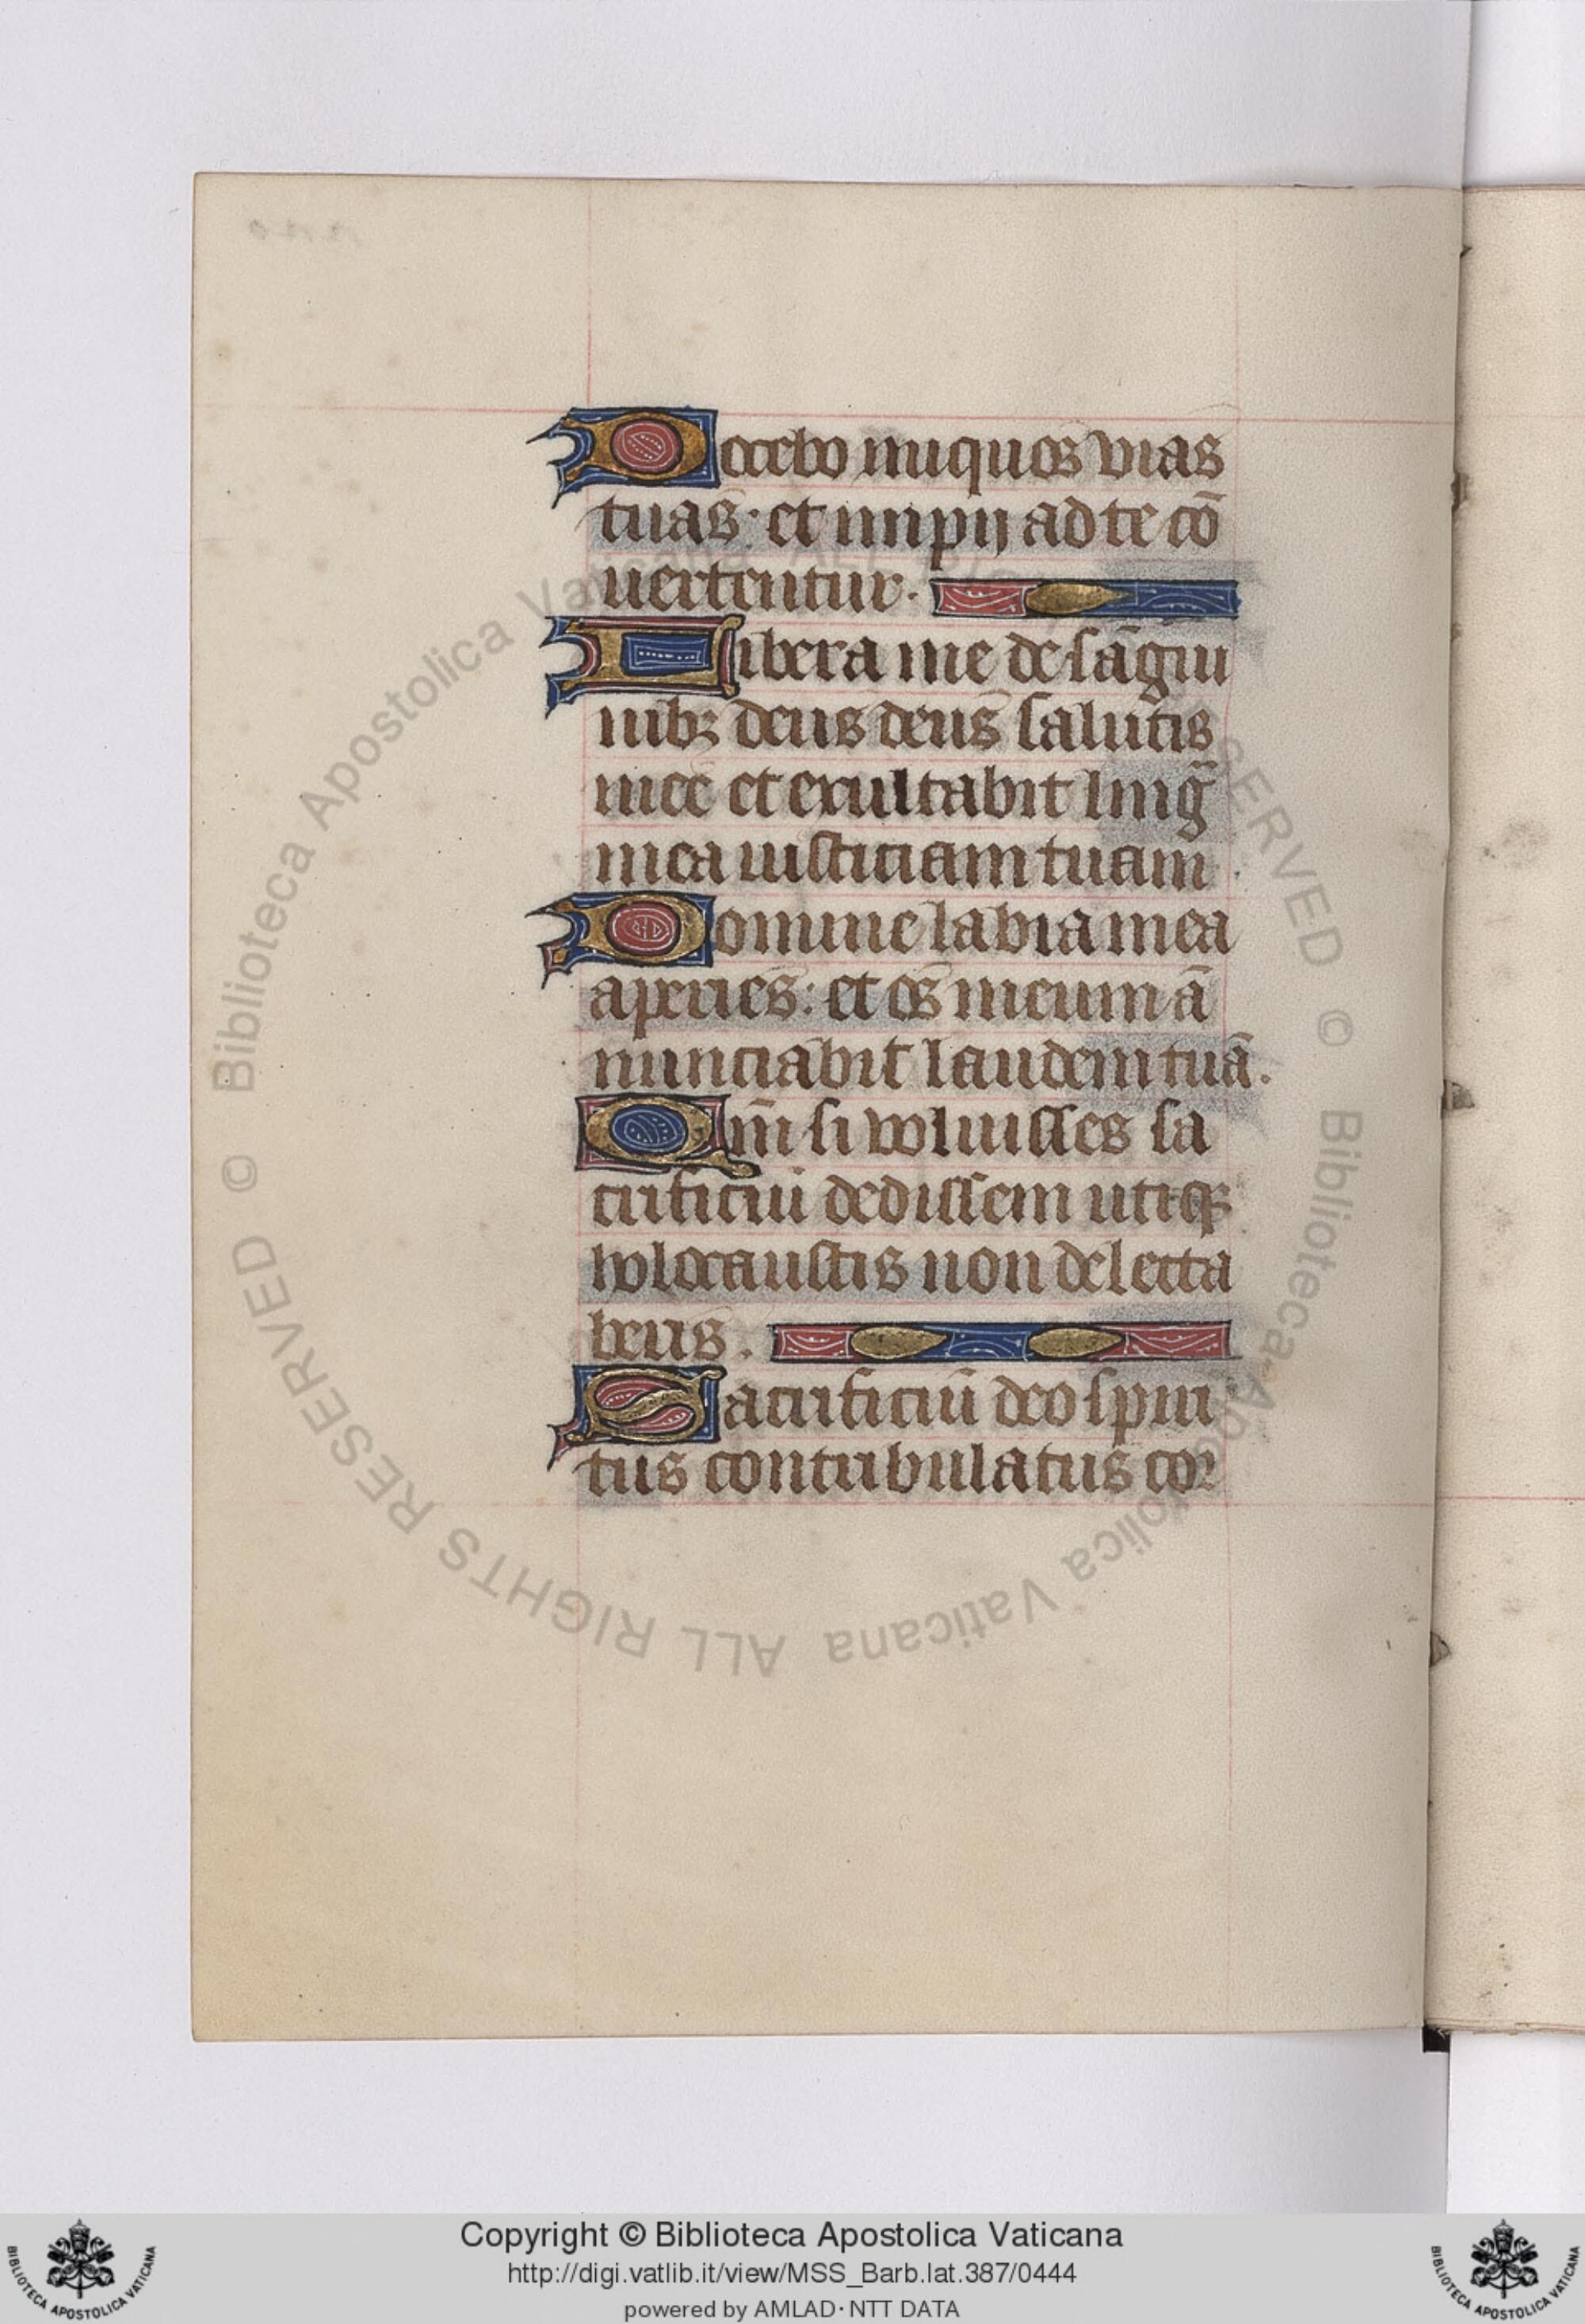 Docebo iniquos vias
tuas· et impij ad te cō
uertentur.
Libera me de sāgui
nibꝫ deus deus salutis
mee et exultabit linḡ
mea iusticiam tuam
Domine labia mea
aperies: et os meum ā
nunciabit laudem tuā.
Qm̄ si voluisses sa
crificiū dedissem utiqꝫ
holocaustis non delecta
beris.
Sacrificiū deo spiri
tus contribulatus cor
© Biblioteca Apostolica Vaticana ALL RIGHTS RESERVED © Biblioteca Apostolica Vaticana ALL RIGHTS RESERVED
Copyright © Biblioteca Apostolica Vaticana
http://digi.vatlib.it/view/MSS_Barb.lat.387/0444
powered by AMLAD·NTT DATA
BIBLIOTECA APOSTOLICA VATICANA
BIBLIOTECA APOSTOLICA VATICANA